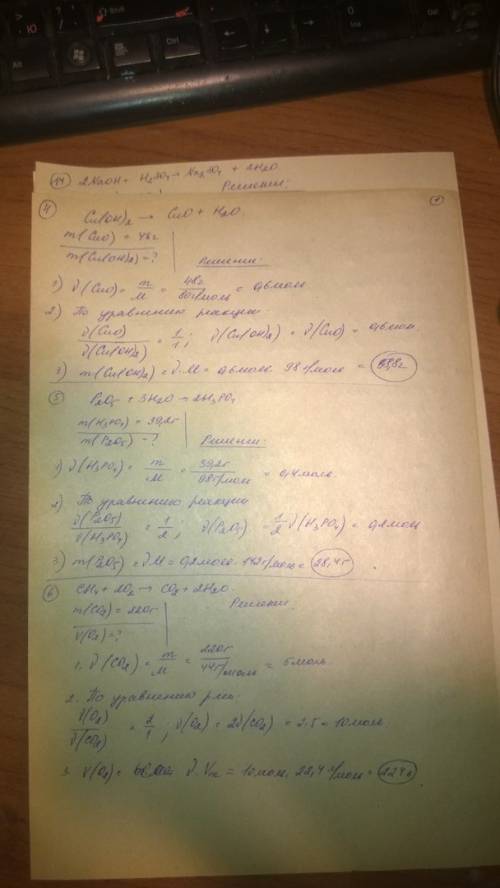 Shift
Alt
Ctrl
Ins
Del
Ю
14 2NaOH + H₂SO₄ → Na₂SO₄ + 2H₂O
Решение:
4
Cu(OH)₂ → CuO + H₂O
m(CuO) = 48г
m(Cu(OH)₂) = ?
Решение:
1) ν(CuO) = m/M = 48г/80г/моль = 0,6моль
2) По уравнению реакции
ν(CuO)/ν(Cu(OH)₂) = 1/1; ν(Cu(OH)₂) = ν(CuO) = 0,6моль
3) m(Cu(OH)₂) = ν·M = 0,6моль · 98г/моль = 58,8г
5 P₂O₅ + 3H₂O → 2H₃PO₄
m(H₃PO₄) = 39,2г
m(P₂O₅) = ?
Решение:
1) ν(H₃PO₄) = m/M = 39,2г/98г/моль = 0,4моль
2) По уравнению реакции
ν(P₂O₅)/ν(H₃PO₄) = 1/2; ν(P₂O₅) = 1/2 ν(H₃PO₄) = 0,2моль
3) m(P₂O₅) = ν·M = 0,2моль · 142г/моль = 28,4г
6 CH₄ + 2O₂ → CO₂ + 2H₂O
m(CO₂) = 220г
V(O₂) = ?
Решение
1. ν(CO₂) = m/M = 220г/44г/моль = 5моль
2. По уравнению р-ии:
ν(O₂)/ν(CO₂) = 2/1; ν(O₂) = 2ν(CO₂) = 2·5 = 10моль
3. V(O₂) = ν·Vm = 10моль · 22,4л/моль = 224л